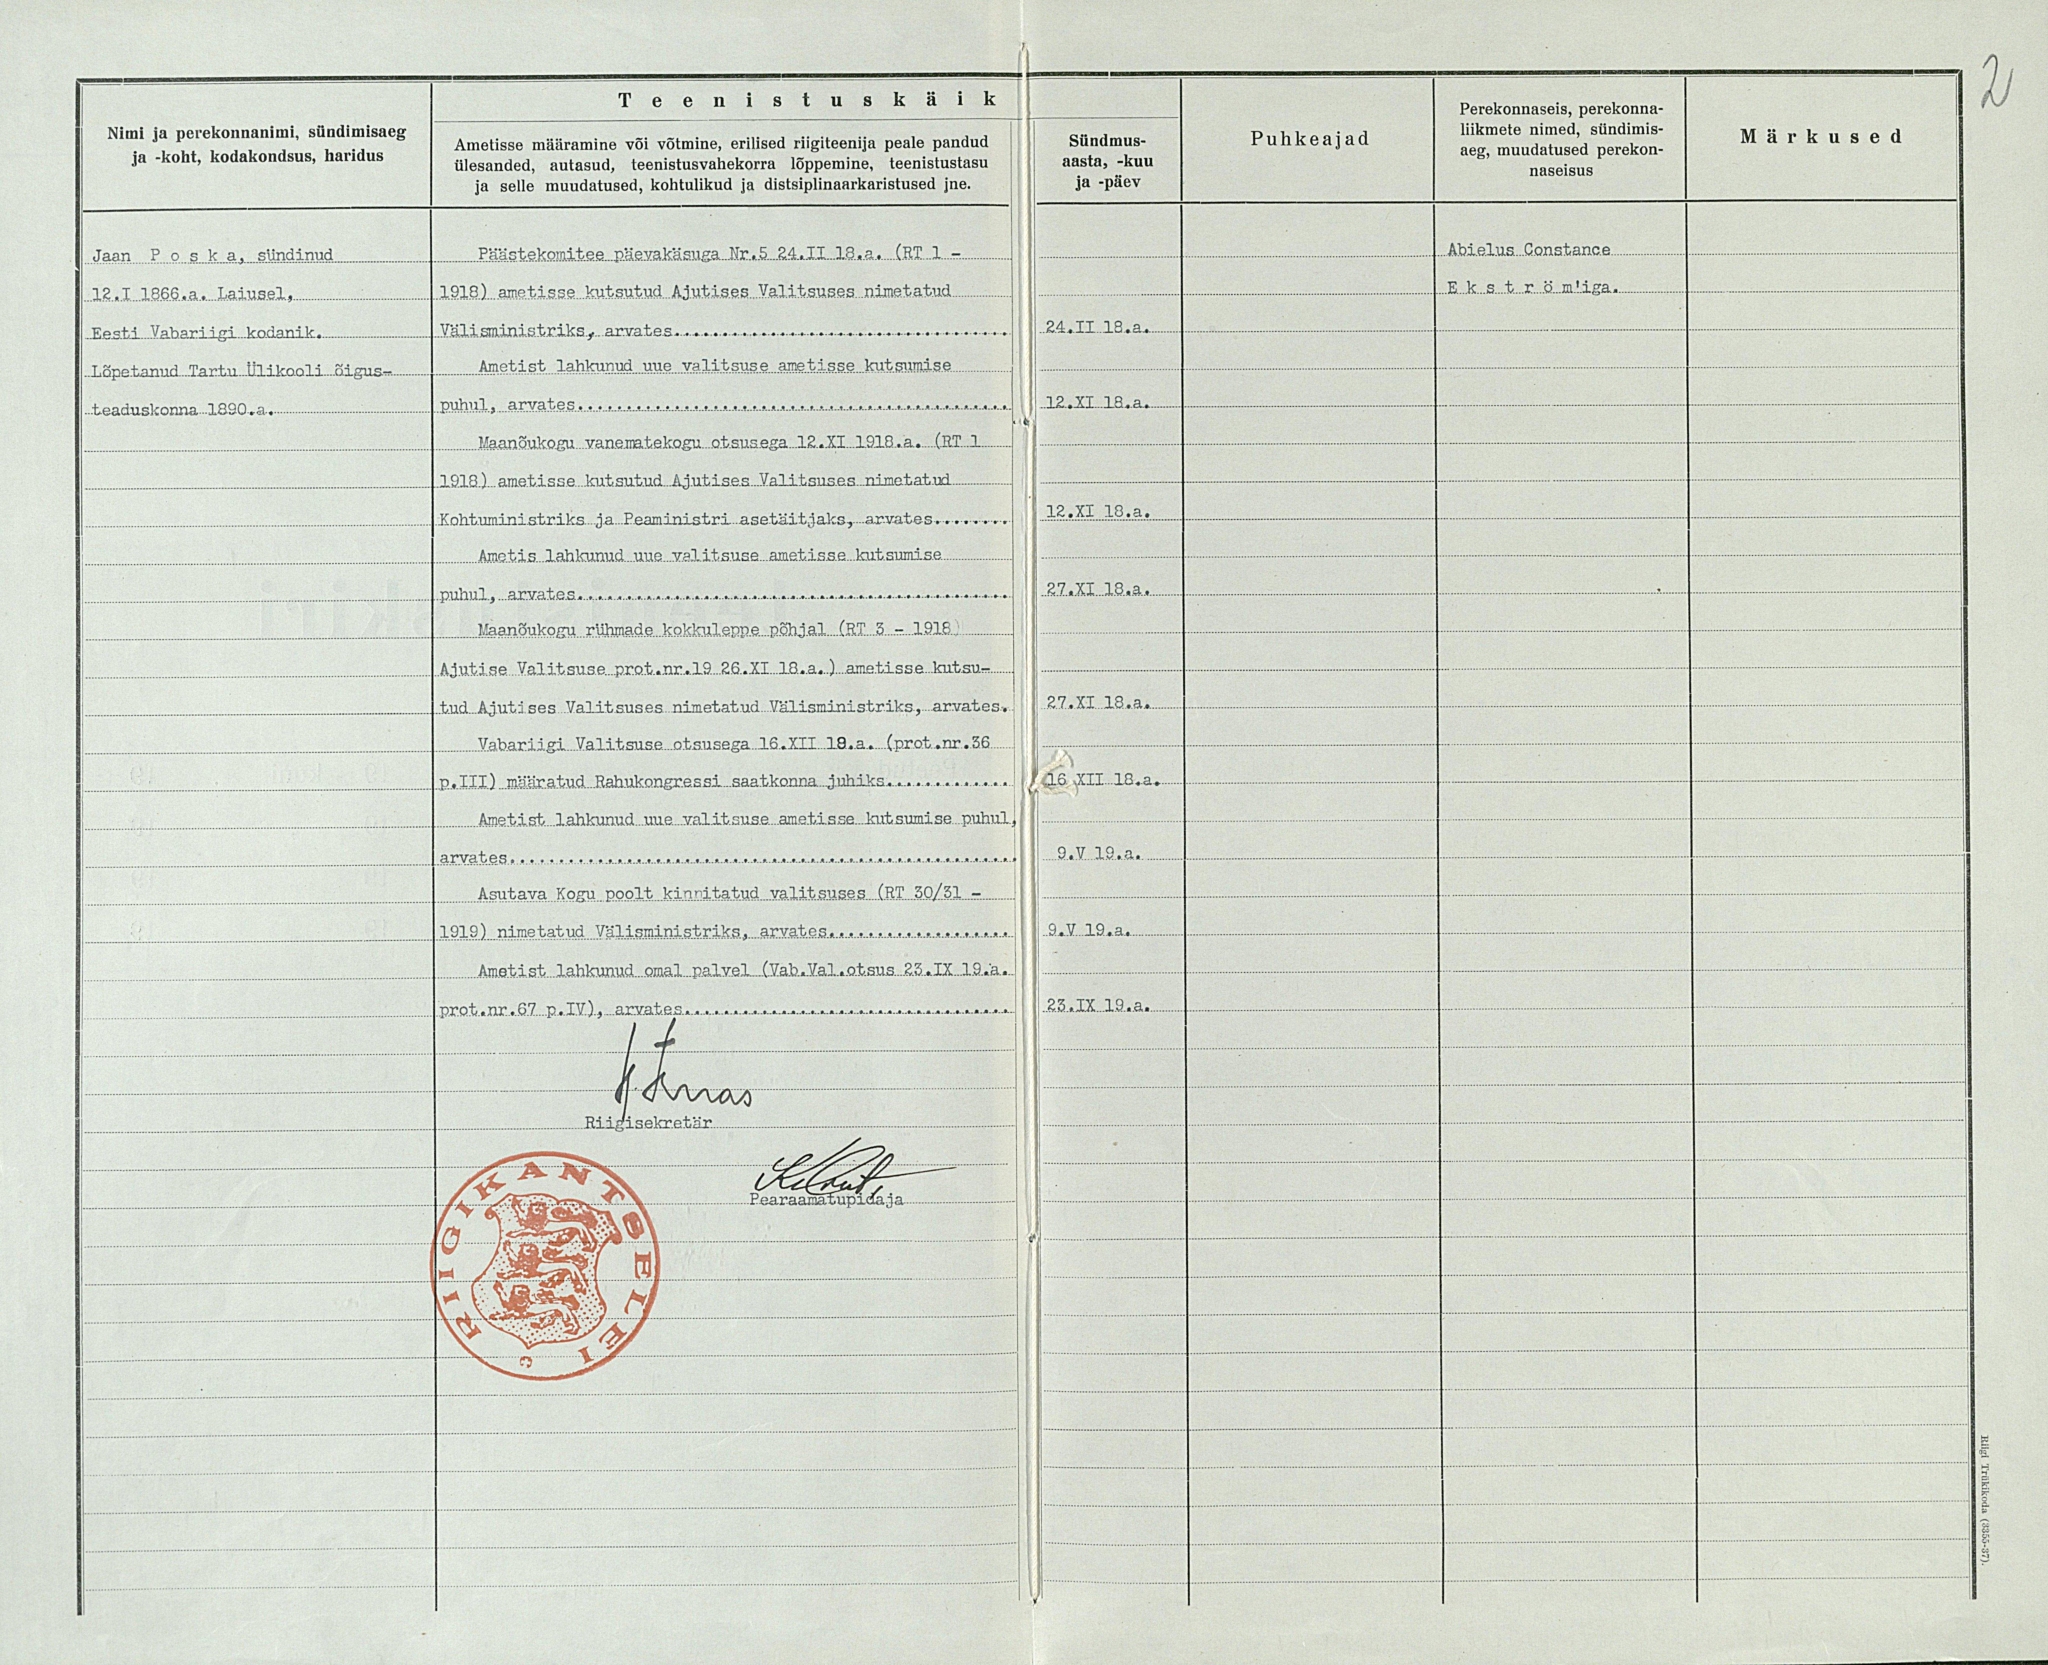 2
Teenistuskäik
Nimi ja perekonnanimi, sündimisaeg
ja -koht, kodakondsus, haridus
Ametisse määramine või võtmine, erilised riigiteenija peale pandud
ülesanded, autasud, teenistusvahekorra lõppemine, teenistustasu
ja selle muudatused, kohtulikud ja distsiplinaarkaristused jne.
Sündmus-
aasta, -kuu
ja -päev
Puhkeajad
Perekonnaseis, perekonna-
liikmete nimed, sündimis-
aeg, muudatused perekon-
naseisus
Märkused
Jaan P o s k a, sündinud
12.I 1866.a. Laiusel,
Eesti Vabariigi kodanik.
Lõpetanud Tartu Ülikooli õigus-
teaduskonna 1890.a.
Päästekomitee päevakäsuga Nr.5 24.II 18.a. (RT 1 -
1918) ametisse kutsutud Ajutises Valitsuses nimetatud
Välisministriks, arvates.................................. 24.II 18.a.
Ametist lahkunud uue valitsuse ametisse kutsumise
puhul, arvates............................................ 12.XI 18.a.
Maanõukogu vanematekogu otsusega 12.XI 1918.a. (RT 1
1918) ametisse kutsutud Ajutises Valitsuses nimetatud
Kohtuministriks ja Peaministri asetäitjaks, arvates........ 12.XI 18.a.
Ametis lahkunud uue valitsuse ametisse kutsumise
puhul, arvates............................................ 27.XI 18.a.
Maanõukogu rühmade kokkuleppe põhjal (RT 3 - 1918)
Ajutise Valitsuse prot.nr.19 26.XI 18.a.) ametisse kutsu-
tud Ajutises Valitsuses nimetatud Välisministriks, arvates. 27.XI 18.a.
Vabariigi Valitsuse otsusega 16.XII 18.a. (prot.nr.36
p.III) määratud Rahukongressi saatkonna juhiks............. 16 XII 18.a.
Ametist lahkunud uue valitsuse ametisse kutsumise puhul,
arvates.................................................... 9.V 19.a.
Asutava Kogu poolt kinnitatud valitsuses (RT 30/31 -
1919) nimetatud Välisministriks, arvates................... 9.V 19.a.
Ametist lahkunud omal palvel (Vab.Val.otsus 23.IX 19.a.
prot.nr.67 p.IV), arvates.................................. 23.IX 19.a.
Abielus Constance
E k s t r ö m'iga.
Riigisekretär
Pearaamatupidaja
RIIGIKANTSELEI
C
Riigi Trükikoda (3355-37).